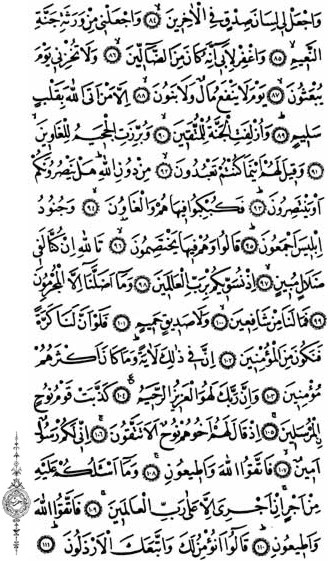 وَاجْعَلْ لِي لِسَانَ صِدْقٍ فِي الْآخِرِينَ ۝٨٤ وَاجْعَلْنِي مِنْ وَرَثَةِ جَنَّةِ
النَّعِيمِ ۝٨٥ وَاغْفِرْ لِأَبِي إِنَّهُ كَانَ مِنَ الضَّالِّينَ ۝٨٦ وَلَا تُخْزِنِي يَوْمَ
يُبْعَثُونَ ۝٨٧ يَوْمَ لَا يَنْفَعُ مَالٌ وَلَا بَنُونَ ۝٨٨ إِلَّا مَنْ أَتَى اللَّهَ بِقَلْبٍ
سَلِيمٍ ۝٨٩ وَأُزْلِفَتِ الْجَنَّةُ لِلْمُتَّقِينَ ۝٩٠ وَبُرِّزَتِ الْجَحِيمُ لِلْغَاوِينَ
۝٩١ وَقِيلَ لَهُمْ أَيْنَمَا كُنْتُمْ تَعْبُدُونَ ۝٩٢ مِنْ دُونِ اللَّهِ هَلْ يَنْصُرُونَكُمْ
أَوْ يَنْتَصِرُونَ ۝٩٣ فَكُبْكِبُوا فِيهَا هُمْ وَالْغَاوُونَ ۝٩٤ وَجُنُودُ
إِبْلِيسَ أَجْمَعُونَ ۝٩٥ قَالُوا وَهُمْ فِيهَا يَخْتَصِمُونَ ۝٩٦ تَاللَّهِ إِنْ كُنَّا لَفِي
ضَلَالٍ مُبِينٍ ۝٩٧ إِذْ نُسَوِّيكُمْ بِرَبِّ الْعَالَمِينَ ۝٩٨ وَمَا أَضَلَّنَا إِلَّا الْمُجْرِمُونَ
۝٩٩ فَمَا لَنَا مِنْ شَافِعِينَ ۝١٠٠ وَلَا صَدِيقٍ حَمِيمٍ ۝١٠١ فَلَوْ أَنَّ لَنَا كَرَّةً
فَنَكُونَ مِنَ الْمُؤْمِنِينَ ۝١٠٢ إِنَّ فِي ذَلِكَ لَآيَةً وَمَا كَانَ أَكْثَرُهُمْ
مُؤْمِنِينَ ۝١٠٣ وَإِنَّ رَبَّكَ لَهُوَ الْعَزِيزُ الرَّحِيمُ ۝١٠٤ كَذَّبَتْ قَوْمُ نُوحٍ
الْمُرْسَلِينَ ۝١٠٥ إِذْ قَالَ لَهُمْ أَخُوهُمْ نُوحٌ أَلَا تَتَّقُونَ ۝١٠٦ إِنِّي لَكُمْ رَسُولٌ
أَمِينٌ ۝١٠٧ فَاتَّقُوا اللَّهَ وَأَطِيعُونِ ۝١٠٨ وَمَا أَسْأَلُكُمْ عَلَيْهِ
مِنْ أَجْرٍ إِنْ أَجْرِيَ إِلَّا عَلَى رَبِّ الْعَالَمِينَ ۝١٠٩ فَاتَّقُوا اللَّهَ
وَأَطِيعُونِ ۝١١٠ قَالُوا أَنُؤْمِنُ لَكَ وَاتَّبَعَكَ الْأَرْذَلُونَ ۝١١١